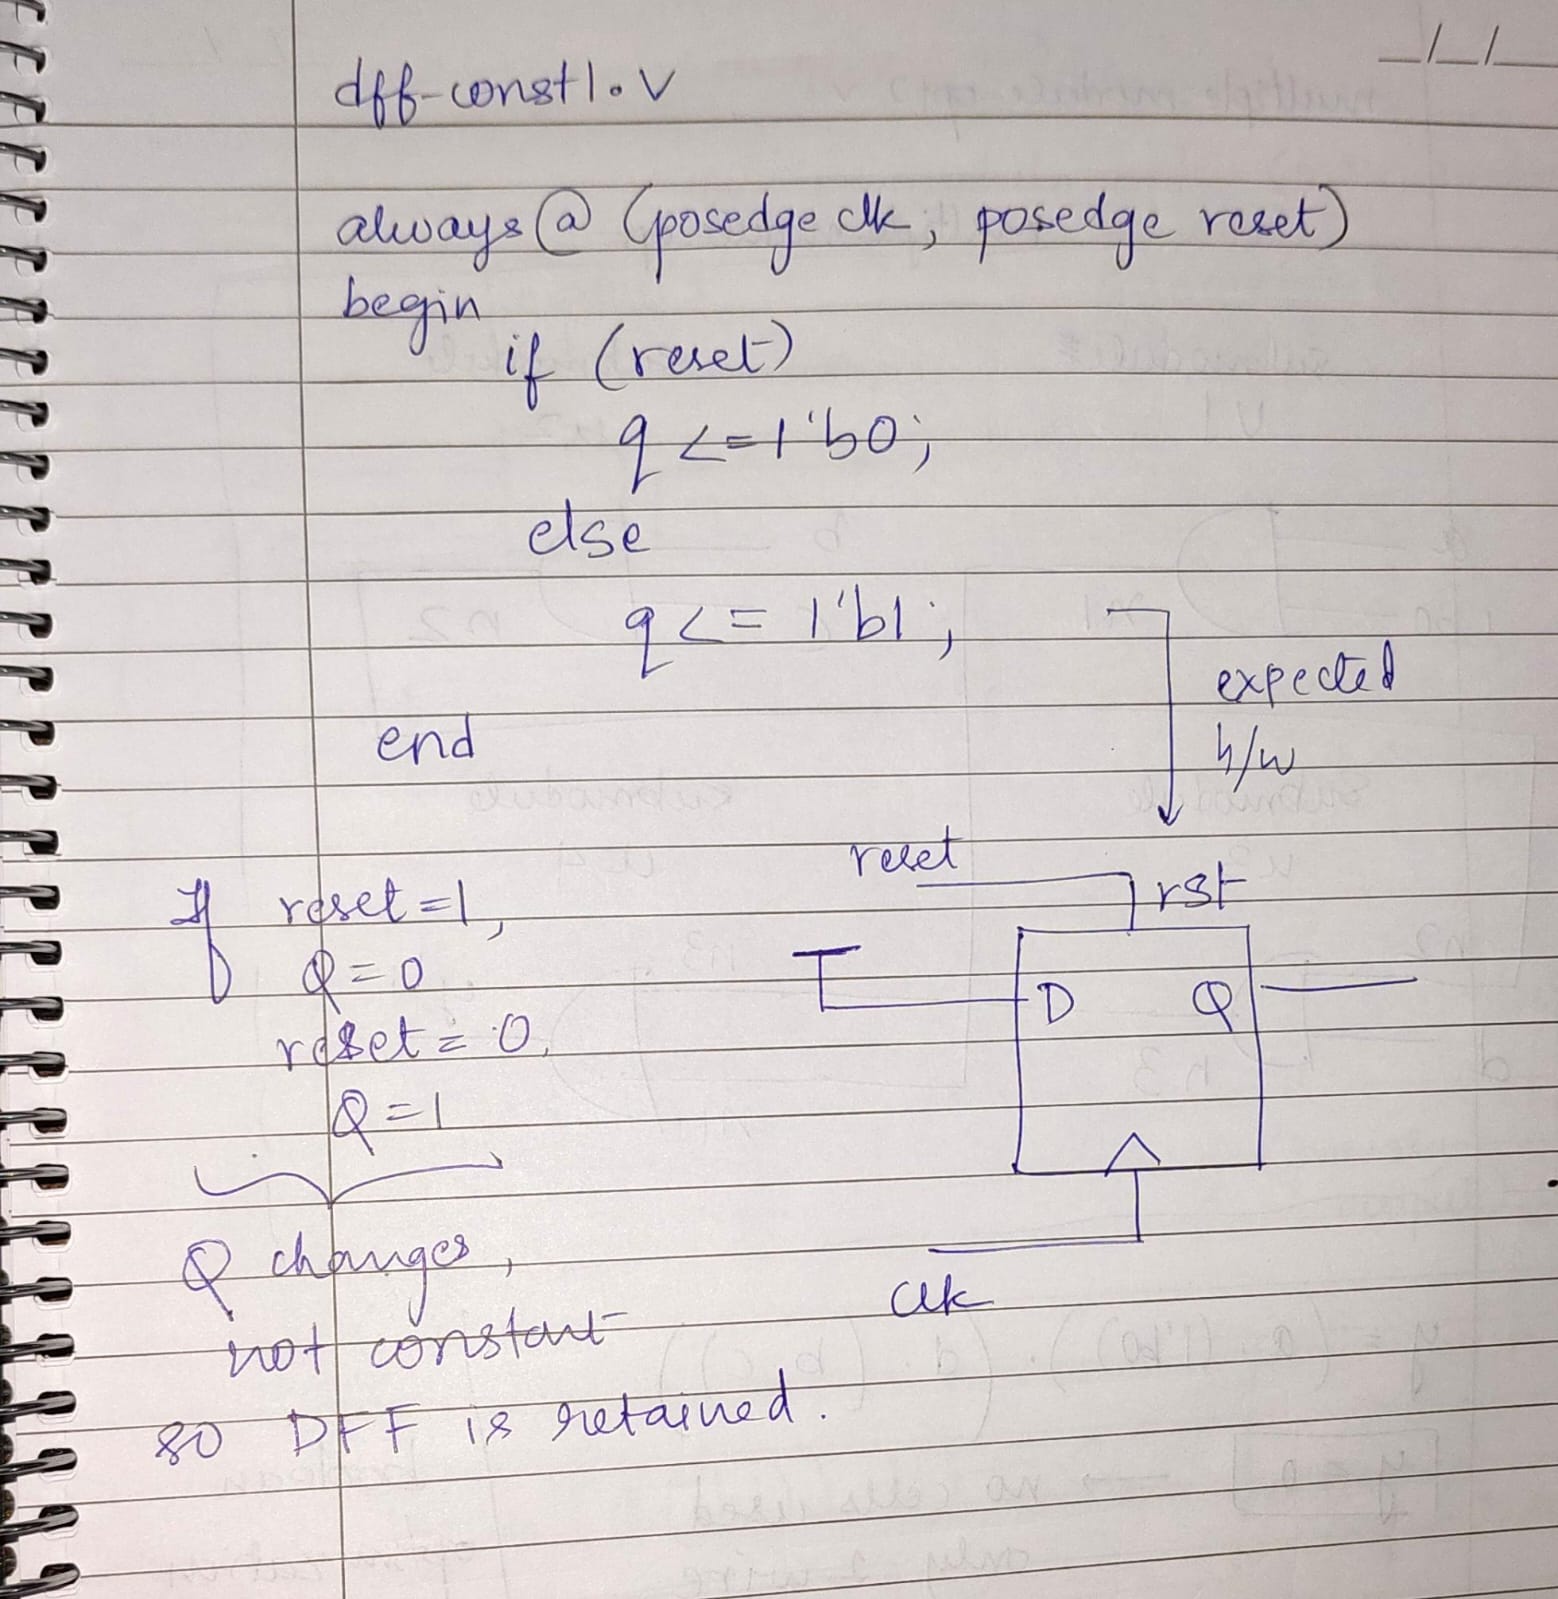 _/_/_
dff-const1.v
always@ (posedge clk, posedge reset)
begin
if (reset)
q <= 1'b0;
else
q <= 1'b1;
expected
h/w
end
reset
rst
D Q
clk
If reset=1,
Q=0
reset=0,
Q=1
Q changes,
not constant
so DFF is retained.